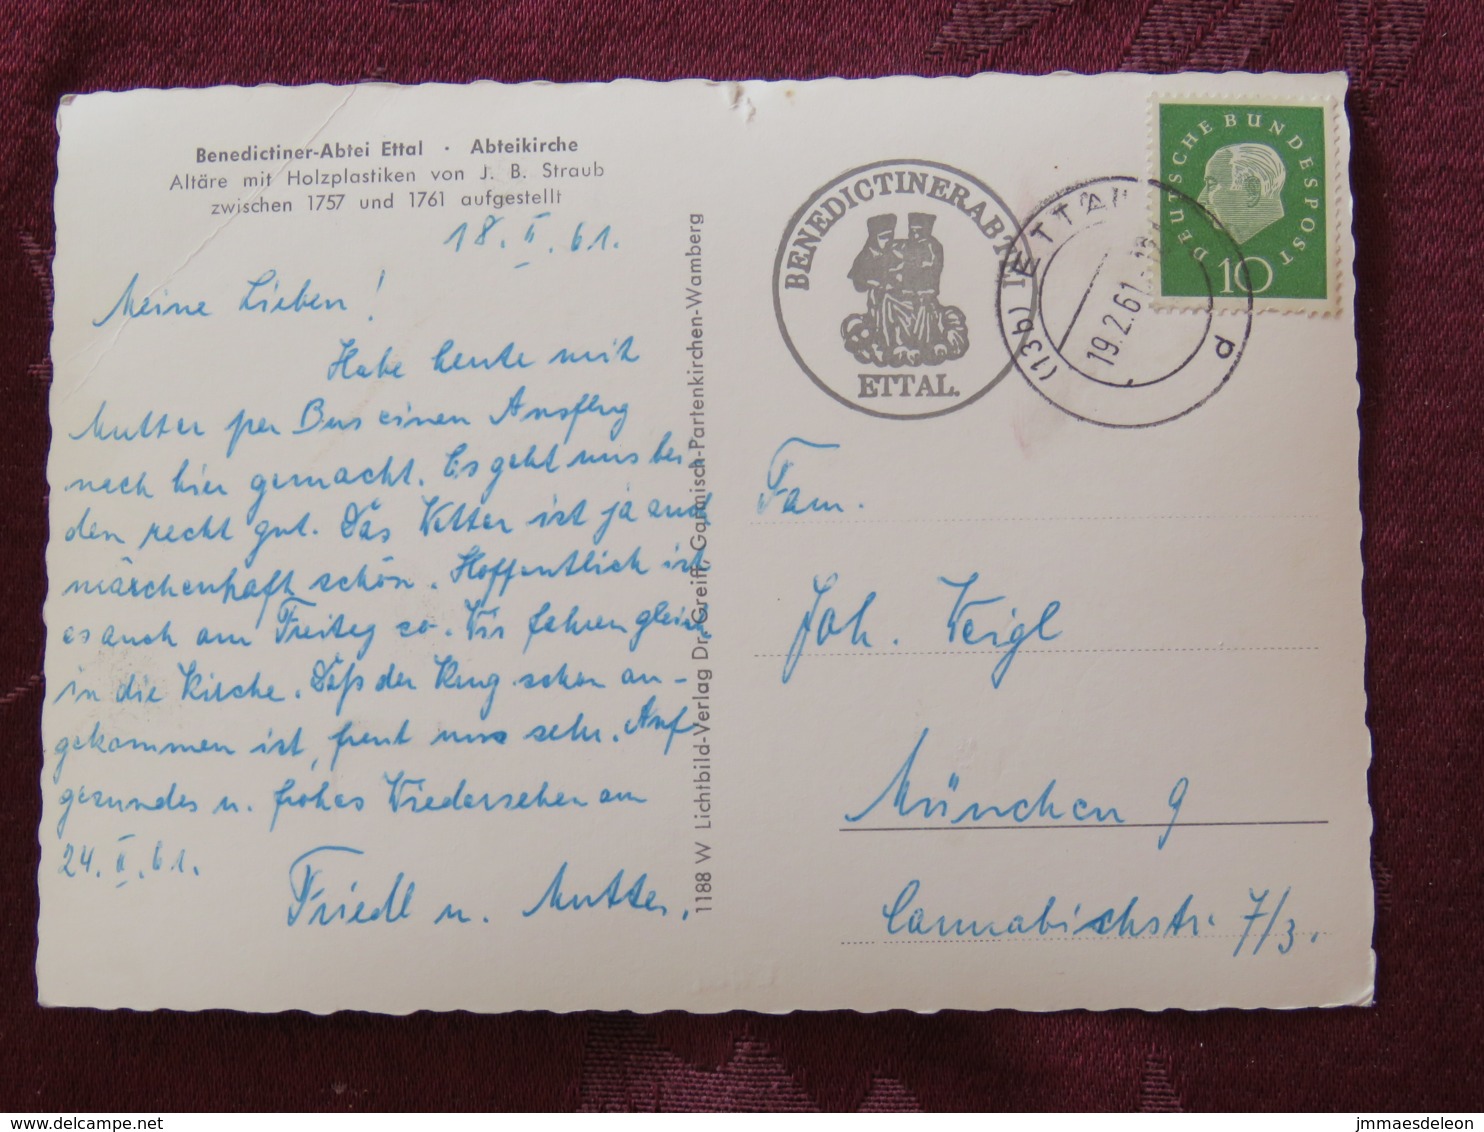 Benedictiner-Abtei Ettal · Abteikirche
Altäre mit Holzplastiken von J. B. Straub
zwischen 1757 und 1761 aufgestellt
18. II. 61.
Meine Lieben!
Habe heute mit
Mutter per Bus einen Ausflug
nach hier gemacht. Es geht uns bei-
den recht gut. Das Wetter ist ja auch
märchenhaft schön. Hoffentlich ist
es auch am Freitag so. Wir fahren gleich
in die Kirche. Daß der Krug schon an-
gekommen ist, freut uns sehr. Auf
gesundes u. frohes Wiedersehen am
24. II. 61.
Friedl u. Mutter.
1188 W Lichtbild-Verlag Dr. Greiff, Garmisch-Partenkirchen-Wamberg
BENEDICTINERABTEI
ETTAL.
(13b) ETTAL
19.2.61.-18
d
DEUTSCHE BUNDESPOST
10
Fam.
Joh. Weigl
München 9
Cannabichstr. 7/3.
jmmaesdeleon